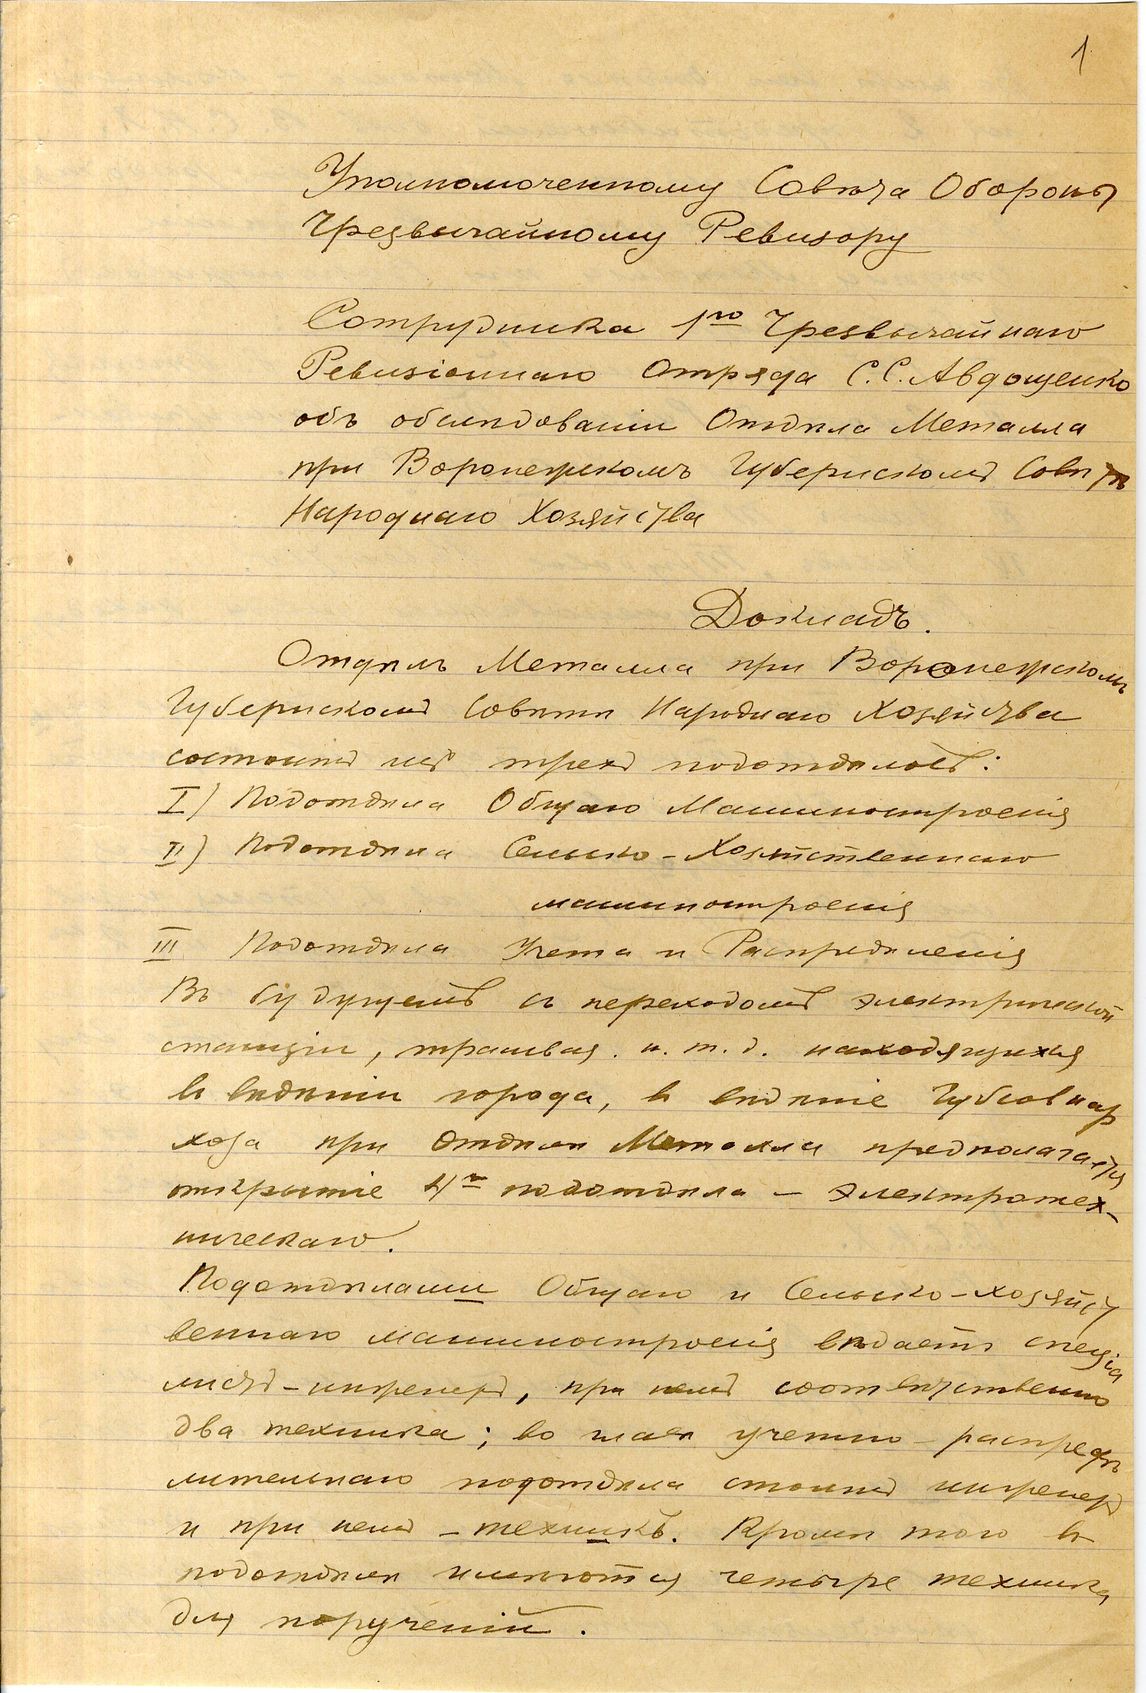 1
Уполномоченному Совѣта Обороны
Чрезвычайному Ревизору
Сотрудника 1го Чрезвычайнаго
Ревизіоннаго Отряда С.С. Авдощенко
объ обслѣдованіи Отдѣла Металла
при Воронежскомъ Губернскомъ Совѣтѣ
Народнаго Хозяйства
Докладъ.
Отдѣлъ Металла при Воронежскомъ
Губернскомъ Совѣтѣ Народнаго Хозяйства
состоитъ изъ трехъ подотдѣловъ:
I) Подотдѣла Общаго Машиностроенія
II) Подотдѣла Сельско-Хозяйственнаго
машиностроенія
III Подотдѣла Учета и Распредѣленія
Въ будущемъ съ переходомъ электрической
станціи, трамвая. и. т. д. находящихся
въ вѣдѣніи города, въ вѣдѣніе Губсовнар
хоза при Отдѣлѣ Металла предполагается
открытіе 4го подотдѣла – Электротех-
ническаго.
Подотдѣлами Общаго и Сельско-хозяйст
веннаго машиностроенія вѣдаетъ спеціа
листъ-инженеръ, при немъ соотвѣтственно
два техника; во главѣ учетно-распредѣ
лительнаго подотдѣла стоитъ инженеръ
и при немъ – техникъ. Кромѣ того въ
подотдѣлѣ имѣются четыре техника
для порученій.